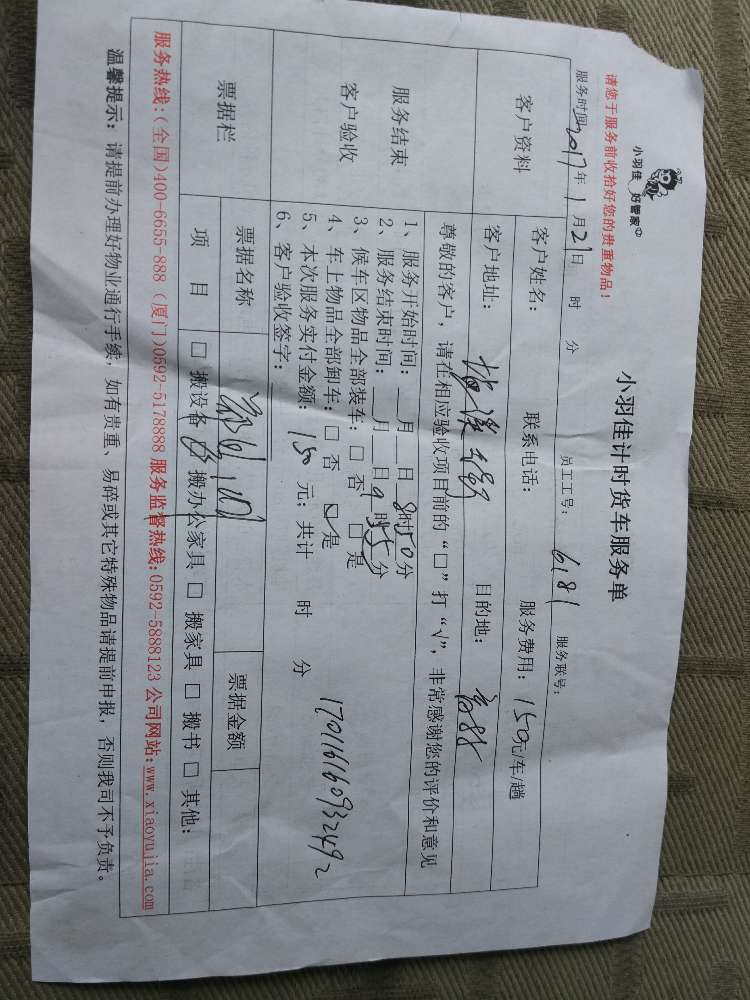 小羽佳 好管家
小羽佳计时货车服务单
请您于服务前收拾好您的贵重物品！
服务时间 2017年 1月 21日 时 分 员工工号： 6181 服务联号：
客户资料
客户姓名： 联系电话： 服务费用： 150元/车/趟
客户地址： 目的地：
服务结束
客户验收
尊敬的客户，请在相应验收项目前的“□”打“√”，非常感谢您的评价和意见
1、服务开始时间：__月__日 8时50分
2、服务结束时间：__月__日 9时55分
3、候车区物品全部装车：□ 否 □ 是
4、车上物品全部卸车：□ 否 ☑ 是
5、本次服务实付金额：150 元；共计 时 分
6、客户验收签字：
170116160932492
票据栏
票据名称 票据金额
项 目 □ 搬设备 ☑ 搬办公家具 □ 搬家具 □ 搬书 □ 其他：
服务热线：（全国）400-6655-888（厦门）0592-5178888 服务监督热线：0592-5888123 公司网站：www.xiaoyujia.com
温馨提示：请提前办理好物业通行手续，如有贵重、易碎或其它特殊物品请提前申报，否则我司不予负责。